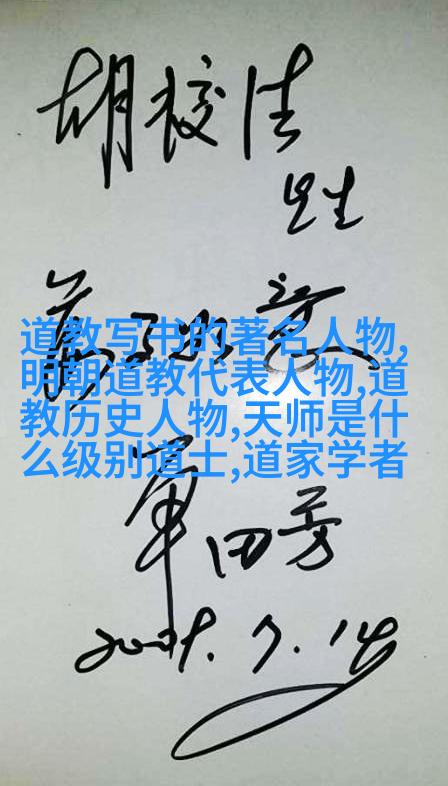 胡校
先生
道教写书的著名人物,
明朝道教代表人物,道
教历史人物,天师是什
么级别道士,道家学者
单田芳